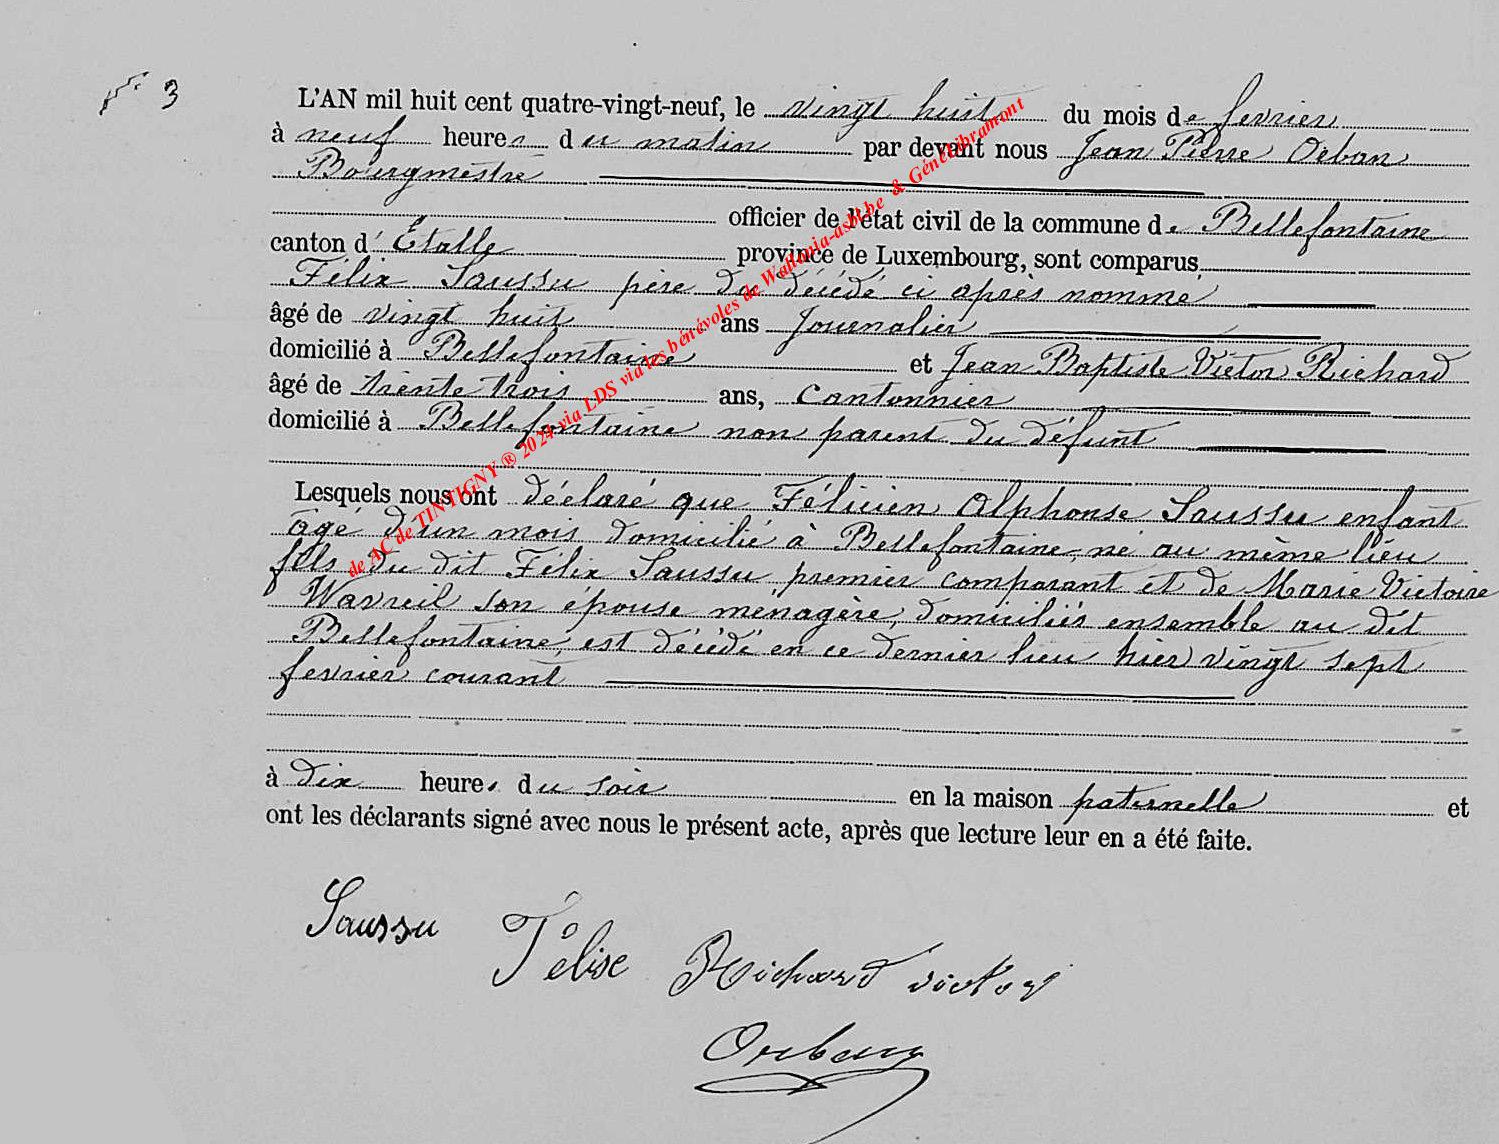 N° 3
L'AN mil huit cent quatre-vingt-neuf, le vingt huit du mois de fevrier
à neuf heures du matin par devant nous Jean Pierre Orban
Bourgmestre
officier de l'état civil de la commune de Bellefontaine
canton d'Etalle province de Luxembourg, sont comparus
Félix Saussu père du décédé ci après nommé
âgé de vingt huit ans Journalier
domicilié à Bellefontaine et Jean Baptiste Victor Richard
âgé de trente trois ans, Cantonnier
domicilié à Bellefontaine non parent du défunt
Lesquels nous ont déclaré que Félicien Alphonse Saussu enfant
âgé d'un mois domicilié à Bellefontaine, né au même lieu
fils du dit Félix Saussu premier comparant et de Marie Victoire
Wavreil son épouse ménagère, domiciliés ensemble au dit
Bellefontaine, est décédé en ce dernier lieu hier vingt sept
fevrier courant
à dix heures du soir en la maison paternelle et
ont les déclarants signé avec nous le présent acte, après que lecture leur en a été faite.
Saussu Félixe Richard victor
Orban
de AC de TINTIGNY ® 2024 via LDS via les bénévoles de Wallonia-asbl.be & GénéaLibramont